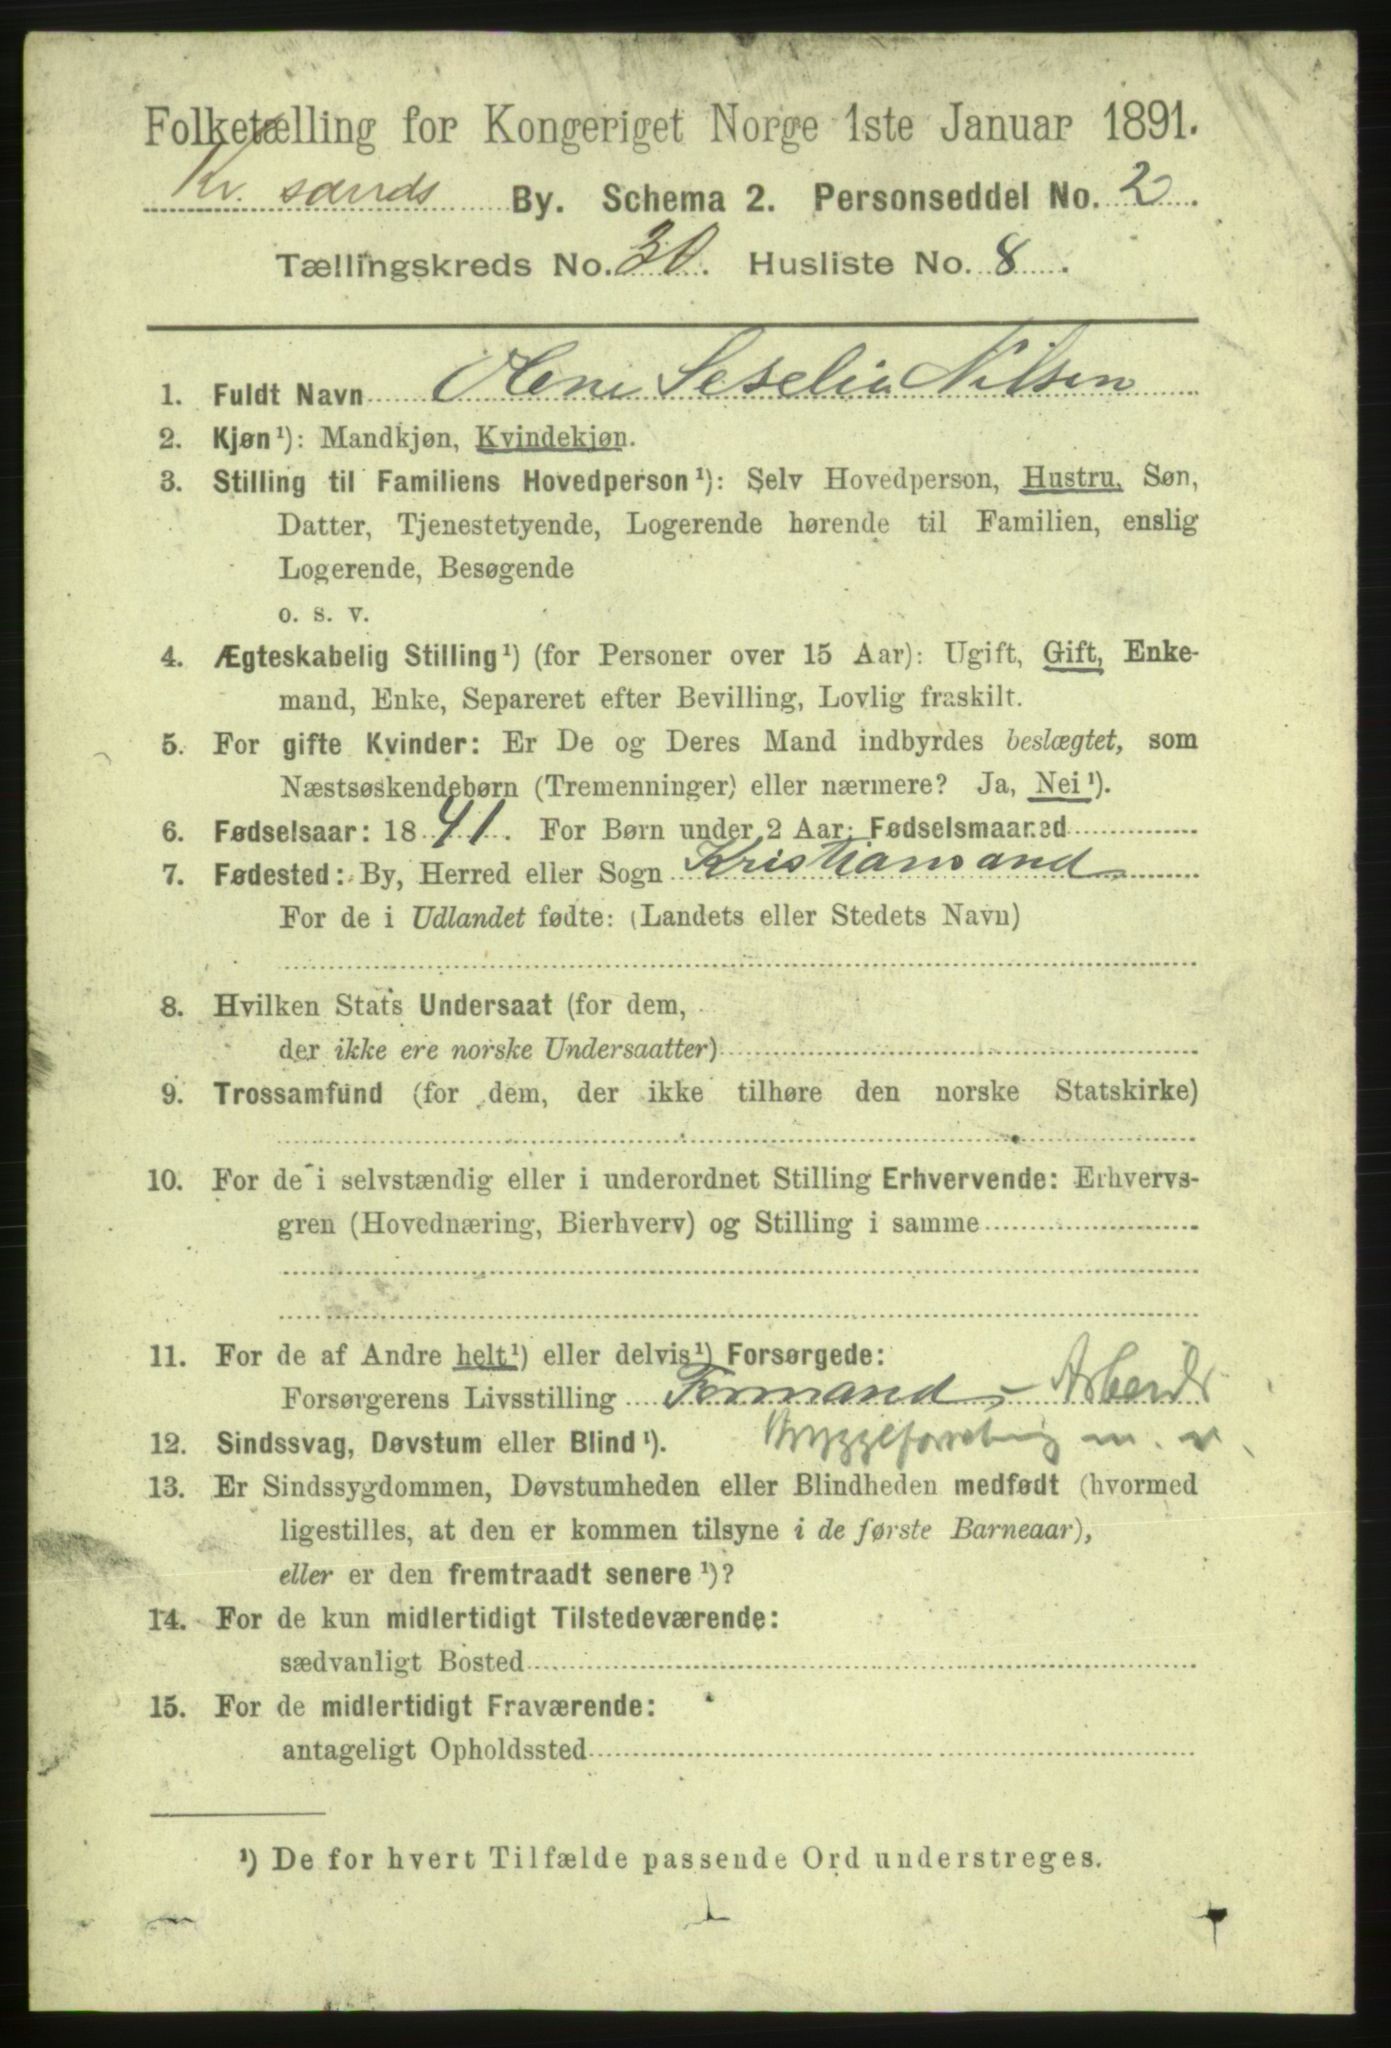 Folketælling for Kongeriget Norge 1ste Januar 1891.
Kr. sands By. Schema 2. Personseddel No. 2.
Tællingskreds No. 30. Husliste No. 8.
1. Fuldt Navn Olene Seselia Nilsen
2. Kjøn¹): Mandkjøn, Kvindekjøn.
3. Stilling til Familiens Hovedperson¹): Selv Hovedperson, Hustru, Søn,
Datter, Tjenestetyende, Logerende hørende til Familien, enslig
Logerende, Besøgende
o. s. v.
4. Ægteskabelig Stilling¹) (for Personer over 15 Aar): Ugift, Gift, Enke-
mand, Enke, Separeret efter Bevilling, Lovlig fraskilt.
5. For gifte Kvinder: Er De og Deres Mand indbyrdes beslægtet, som
Næstsøskendebørn (Tremenninger) eller nærmere? Ja, Nei¹).
6. Fødselsaar: 1841. For Børn under 2 Aar: Fødselsmaaned
7. Fødested: By, Herred eller Sogn Kristiansand
For de i Udlandet fødte: (Landets eller Stedets Navn)
8. Hvilken Stats Undersaat (for dem,
der ikke ere norske Undersaatter)
9. Trossamfund (for dem, der ikke tilhøre den norske Statskirke)
10. For de i selvstændig eller i underordnet Stilling Erhvervende: Erhvervs-
gren (Hovednæring, Bierhverv) og Stilling i samme
11. For de af Andre helt¹) eller delvis¹) Forsørgede:
Forsørgerens Livsstilling Formand - Arbeids
12. Sindssvag, Døvstum eller Blind¹). m. v.
13. Er Sindssygdommen, Døvstumheden eller Blindheden medfødt (hvormed
ligestilles, at den er kommen tilsyne i de første Barneaar),
eller er den fremtraadt senere¹)?
14. For de kun midlertidigt Tilstedeværende:
sædvanligt Bosted
15. For de midlertidigt Fraværende:
antageligt Opholdssted
¹) De for hvert Tilfælde passende Ord understreges.